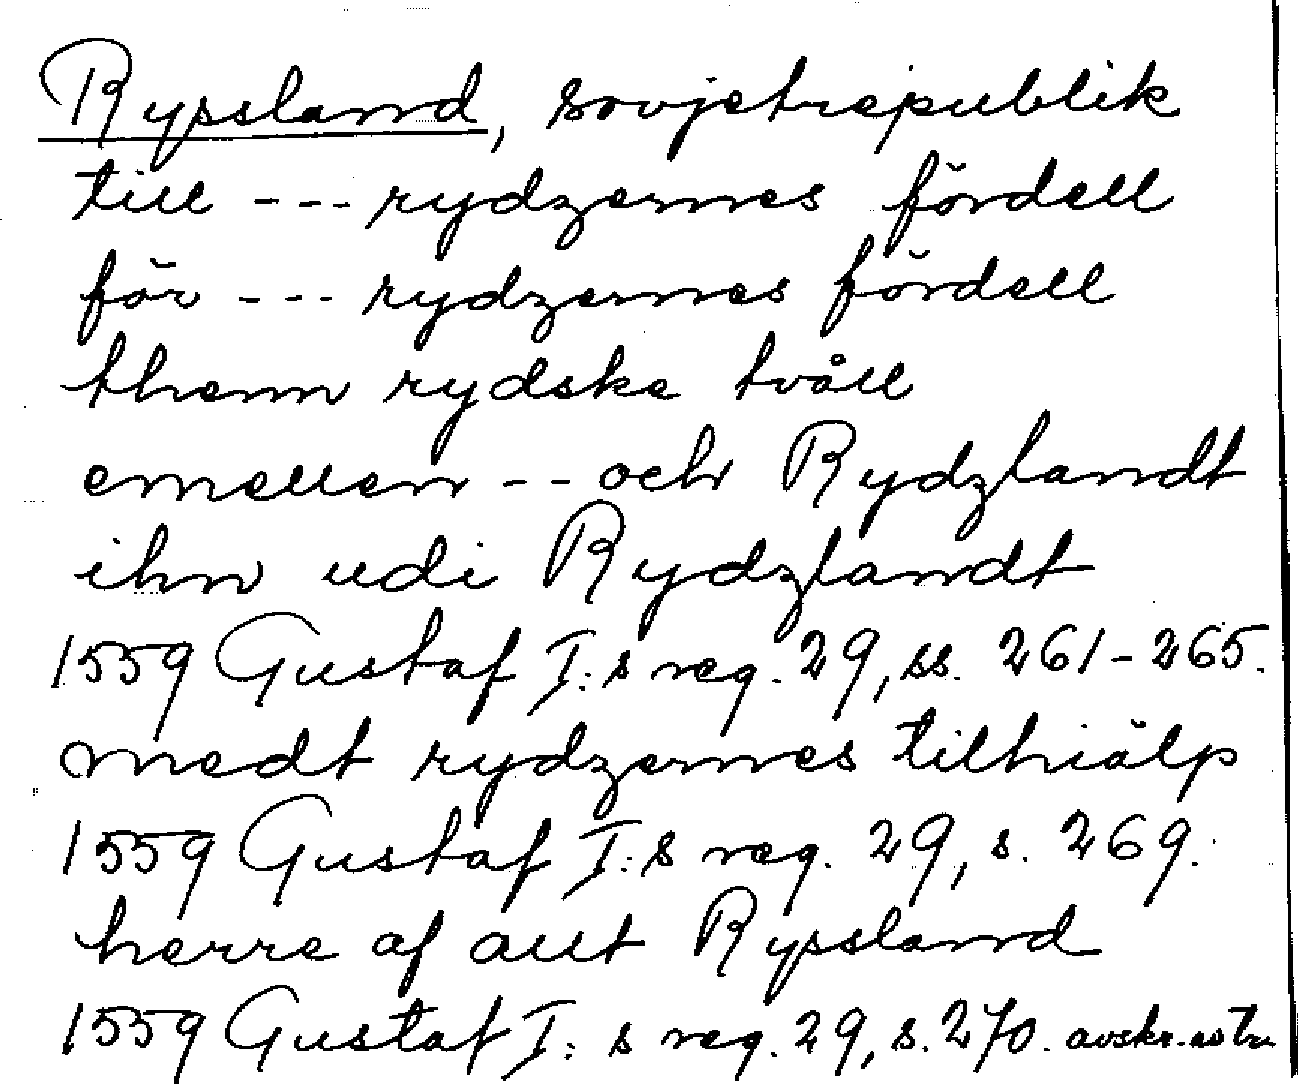 Ryssland, sovjetrepublik
till --- rydzernes fördell
för --- rydzernes fördell
thenn rydske tvåll
emellen -- och Rydzlandt
ihn udi Rydzlandt
1559 Gustaf I:s reg. 29, ss. 261-265.
medt rydzernes tilhiälp
1559 Gustaf I:s reg. 29, s. 269.
herre af allt Ryssland
1559 Gustaf I:s reg. 29, s. 270. avskr.